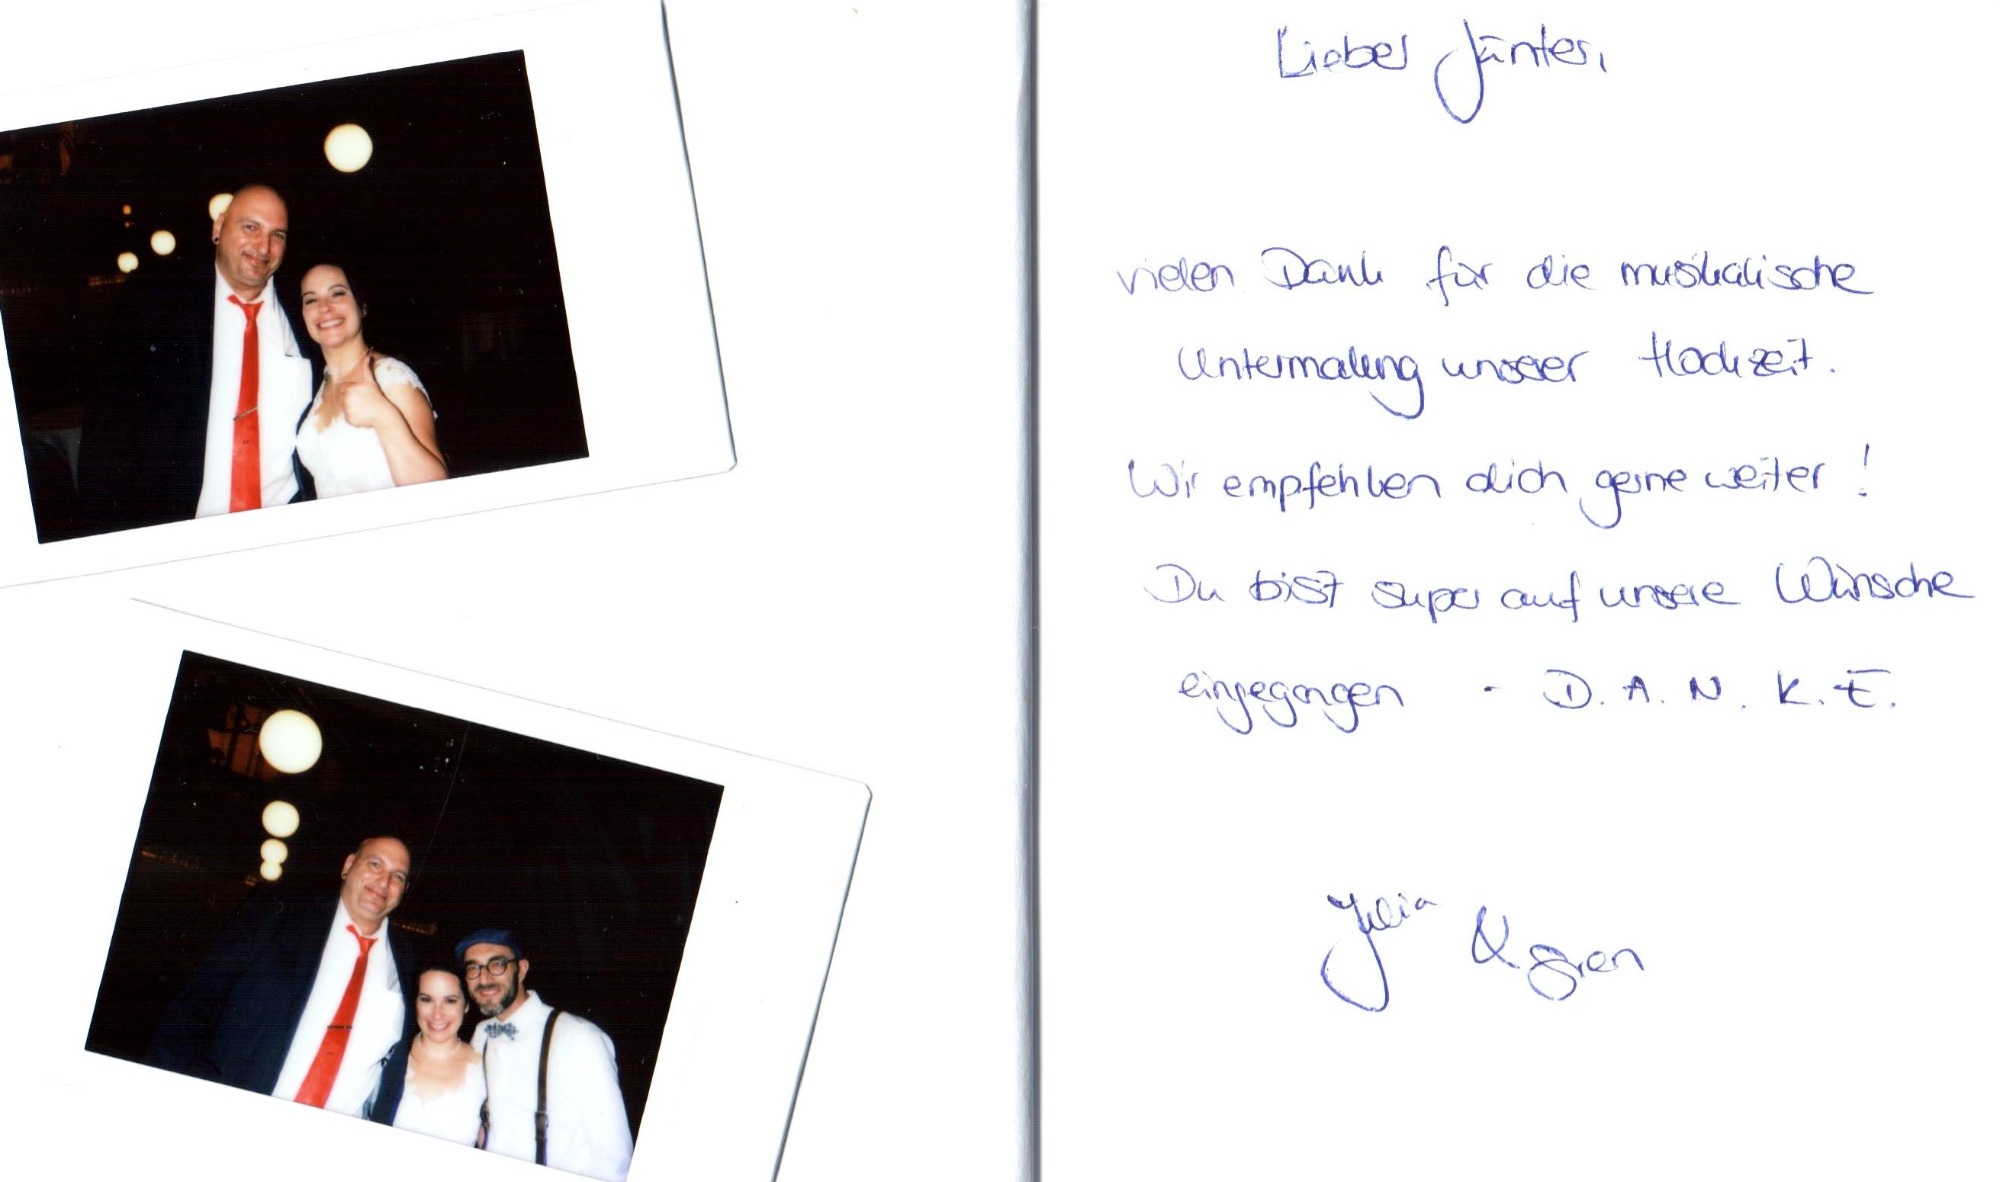 Lieber Jünter,
vielen Dank für die musikalische
Untermalung unserer Hochzeit.
Wir empfehlen dich gerne weiter!
Du bist super auf unsere Wünsche
eingegangen - D.A.N.K.E.
Julia &